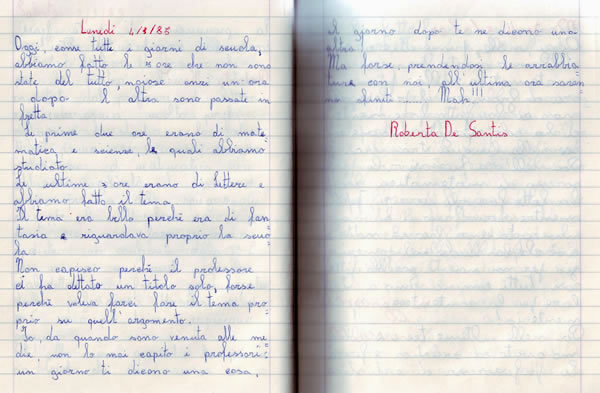 Lunedì 4/3/85
Oggi, come tutti i giorni di scuola,
abbiamo fatto le 5 ore che non sono
state del tutto, noiose anzi un'ora
dopo l'altra sono passate in
fretta.
Le prime due ore erano di mate=
matica e scienze, le quali abbiamo
studiato.
Le ultime 3 ore erano di lettere e
abbiamo fatto il tema.
Il tema era bello perchè era di fan=
tasia e riguardava proprio la scuo=
la.
Non capisco perchè il professore
ci ha dettato un titolo solo, forse
perchè voleva farci fare il tema pro=
prio su quell'argomento.
Io, da quando sono venuta alle me=
die, non ho mai capito i professori:
un giorno ti dicono una cosa,
il giorno dopo te ne dicono una
altra.
Ma forse, prendendosi le arrabbia=
ture con noi, all'ultima ora saran=
no sfiniti... Mah!!!
Roberta De Santis